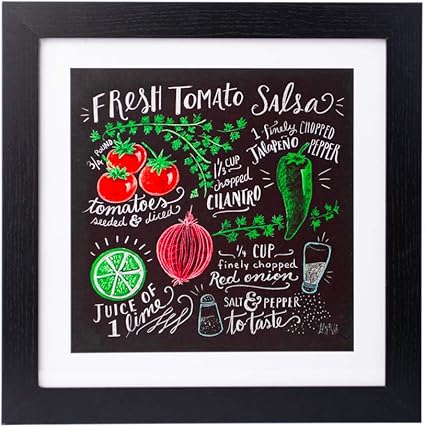 Fresh Tomato Salsa
3/4 POUND
tomatoes
seeded & diced
1/3 CUP
chopped
CILANTRO
1 finely CHOPPED
JALAPEÑO PEPPER
JUICE OF
1 lime
1/4 CUP
finely chopped
Red onion
SALT & PEPPER
to taste